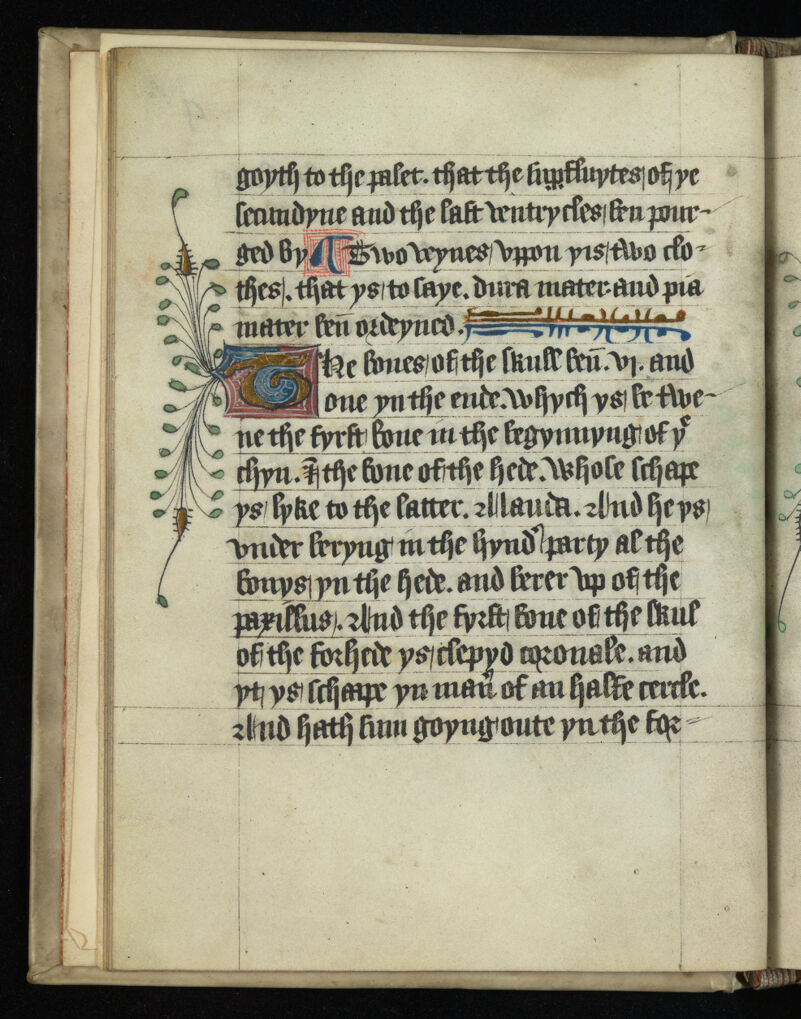 goyth to the palet. that the suppfluytes of ye
secundyne and the last ventrycles ben pour-
ged by Two veynes vppon yis two clo-
thes. that ys to saye. dura mater and pia
mater ben ordeyned.
The bones of the skull ben. vj. and
one yn the ende. whych ys be twe-
ne the fyrst bone in the begynnyng of yͤ
chyn. & the bone of the hede. Whose schape
ys lyke to the latter. Lauda. And he ys
vnder beryng in the hynd party al the
bonys yn the hede. and berer vp of the
paxillus. And the fyrst bone of the skul
of the forhede ys clepyd coronale. and
yt ys schape yn man̄ of an halfe cercle.
And hath sum goyng oute yn the for-